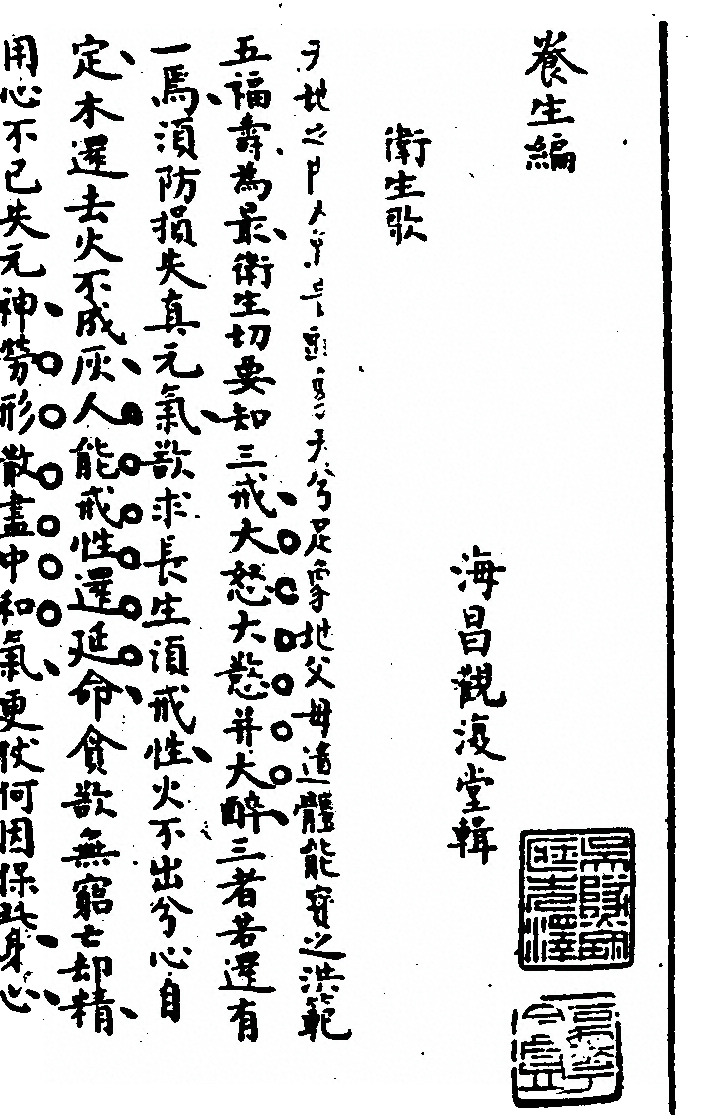 養生編
海昌觀海堂輯
衛生歌
天地之間人爲貴頭象天兮足象地父母遺體能寶之洪範
五福壽為最衛生切要知三戒大怒大慾并大醉三者若還有
一焉須防損失真元氣欲求長生須戒性火不出兮心自
定木還去火不成灰人能戒性還延命貪欲無窮亡却精
用心不已失元神勞形散盡中和氣更仗何因保此身心